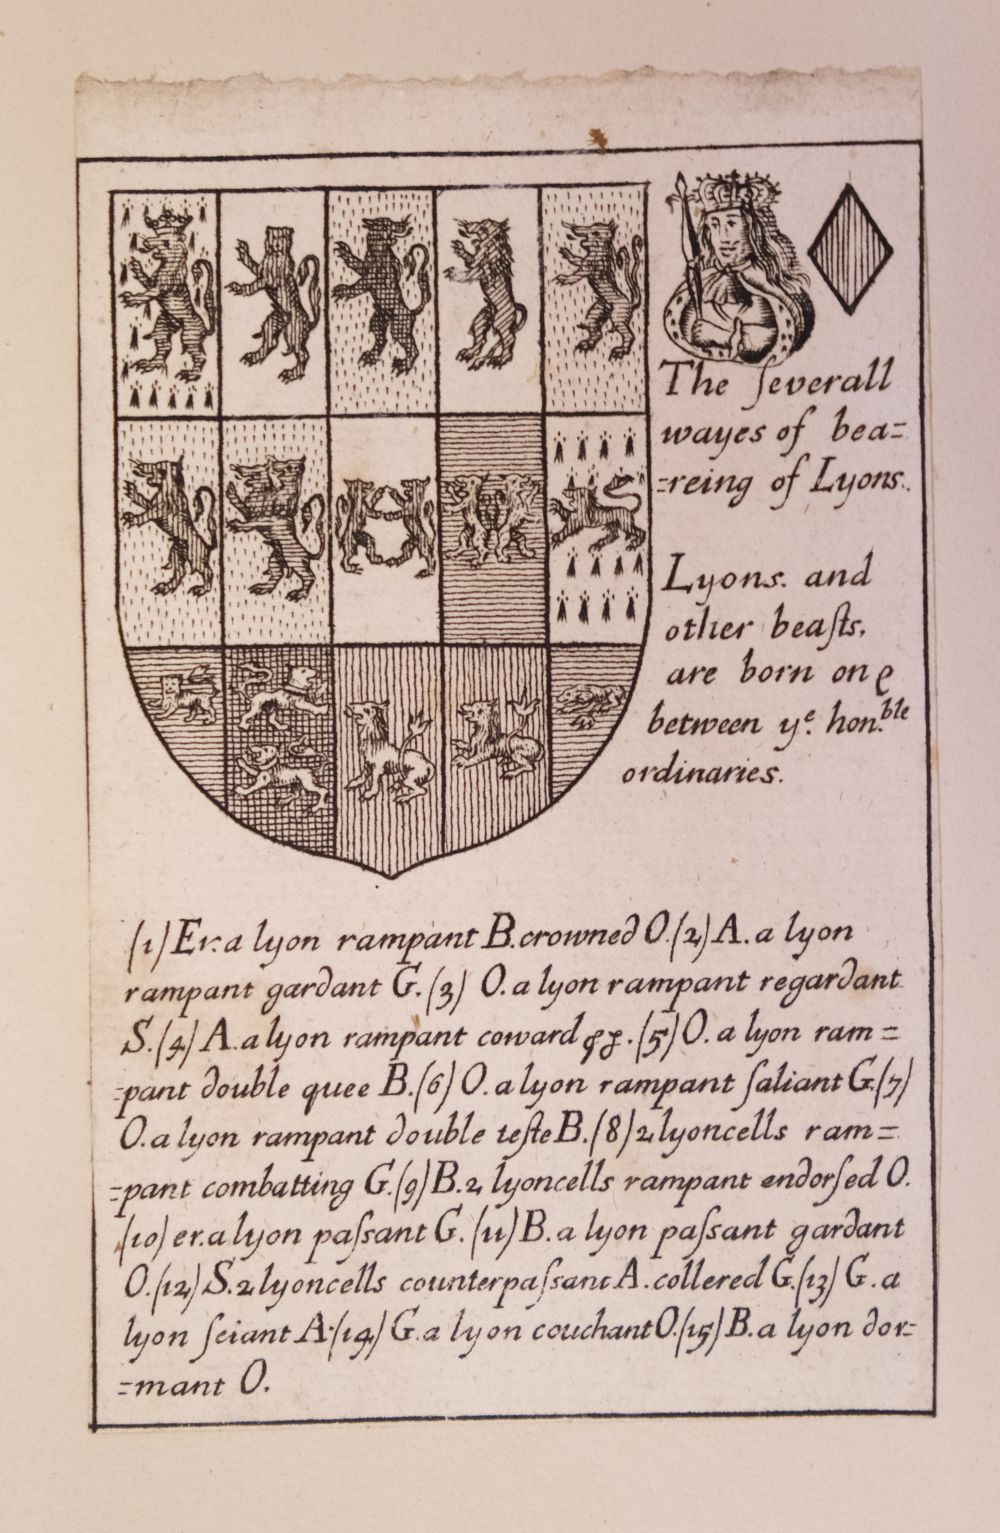 The ſeverall
wayes of bea=
=reing of Lyons.
Lyons. and
other beaſts,
are born one
between yᵉ. hon.ᵇˡᵉ
ordinaries.
(1) Er. a lyon rampant B. crowned O. (2) A. a lyon
rampant gardant G. (3) O. a lyon rampant regardant
S. (4) A. a lyon rampant coward . (5) O. a lyon ram=
=pant double quee B. (6) O. a lyon rampant ſaliant G. (7)
O. a lyon rampant double teſte B. (8) 2 lyoncells ram=
=pant combatting G. (9) B. 2 lyoncells rampant endorſed O.
(10) er. a lyon paſsant G. (11) B. a lyon paſsant gardant
O. (12) S. 2 lyoncells counterpaſsant A. collered G. (13) G. a
lyon ſeiant A. (14) G. a lyon couchant O. (15) B. a lyon dor=
=mant O.